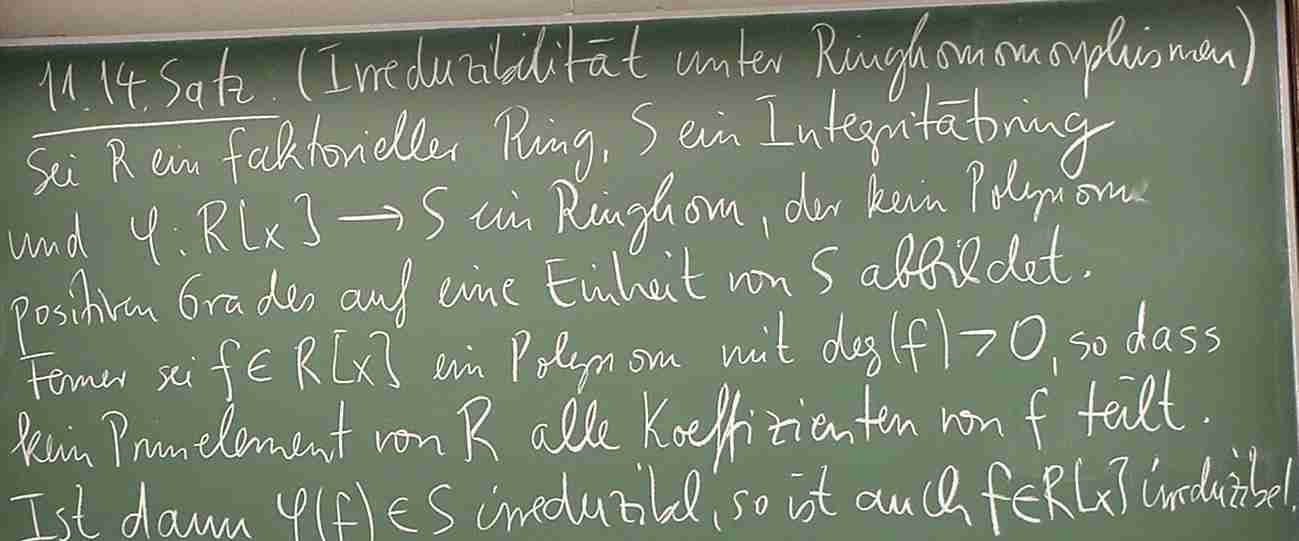 11.14. Satz. (Irreduzibilität unter Ringhomomorphismen)
Sei R ein faktorieller Ring, S ein Integritätsring
und φ: R[x] → S ein Ringhom, der kein Polynom
positiven Grades auf eine Einheit von S abbildet.
Ferner sei f ∈ R[x] ein Polynom mit deg(f) > 0, so dass
kein Primelement von R alle Koeffizienten von f teilt.
Ist dann φ(f) ∈ S irreduzibel, so ist auch f ∈ R[x] irreduzibel.